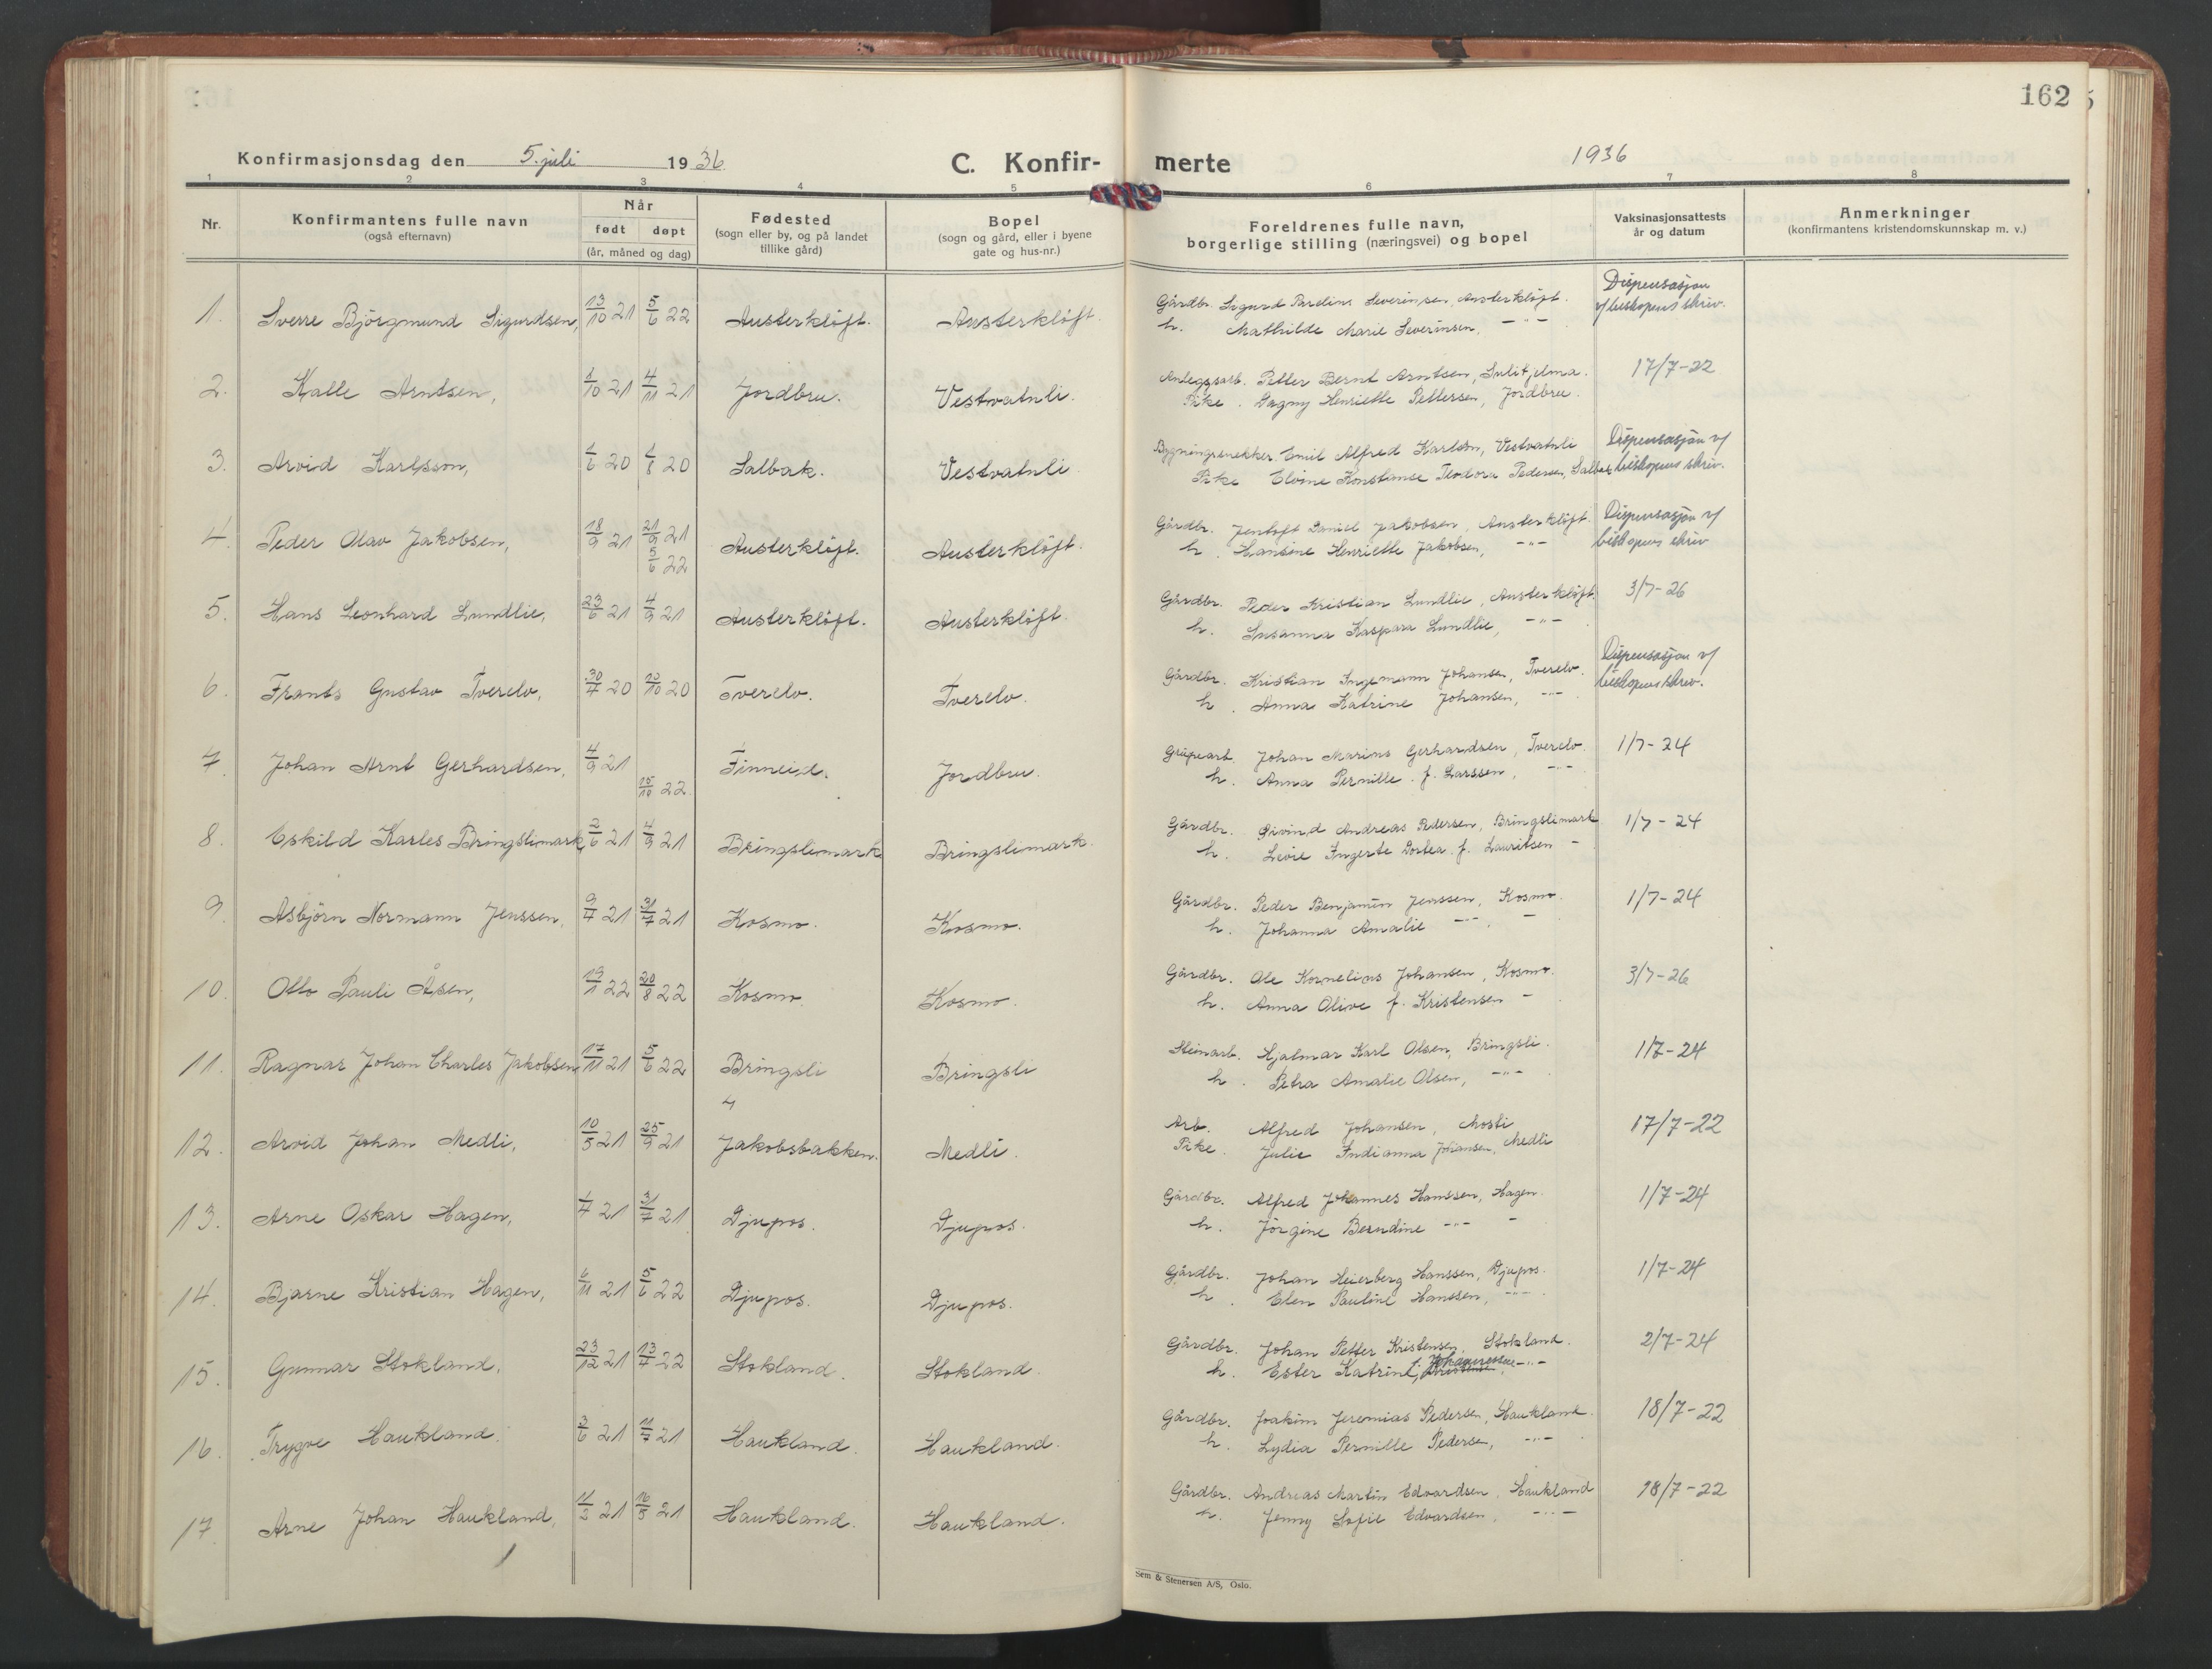 162
Konfirmasjonsdag den 5. juli 1936. C. Konfir- merte 1936
1 2 3 4 5 6 7 8
Nr. Konfirmantens fulle navn (også efternavn) Når født døpt (år, måned og dag) Fødested (sogn eller by, og på landet tillike gård) Bopel (sogn og gård, eller i byene gate og hus-nr.) Foreldrenes fulle navn, borgerlige stilling (næringsvei) og bopel Vaksinasjonsattests år og datum Anmerkninger (konfirmantens kristendomskunnskap m. v.)
1. Sverre Björgmund Sigurdsen, 13/10 21 5/6 22 Austerklöft. Austerklöft. Gårdbr. Sigurd Parelius Severinsen, Austerklöft. Dispensasjon
h. Mathilde Marie Severinsen, -"- v/ biskopens skriv.
2. Kalle Arntsen, 8/10 21 4/11 21 Jordbru. Vestvatnli. Anlegsarb. Petter Bernt Arntsen, Sulitjelma. 17/7-22
Pike. Dagny Henriette Pettersen, Jordbru.
3. Arvid Karlsson, 1/6 20 1/8 20 Salbak. Vestvatnli Bygningssnekker Emil Alfred Karlson, Vestvatnli Dispensasjon v/
Pike Elvine Konstanse Teodora Pedersen, Salbak biskopens skriv.
4. Peder Olav Jakobsen, 18/9 21 21/9 21 Austerklöft. Austerklöft. Gårdbr. Jentoft Daniel Jakobsen, Austerklöft. Dispensasjon v/
5/6 22 h. Hansine Henriette Jakobsen, -"- biskopens skriv
5. Hans Leonhard Lundlie, 23/6 21 4/9 21 Austerklöft. Austerklöft. Gårdbr. Peder Kristian Lundlie, Austerklöft. 3/7-26
h. Susanna Kaspara Lundlie, -"-
6. Frants Gustav Tverelv, 30/7 20 10/10 20 Tverelv. Tverelv. Gårdbr. Kristian Ingemann Johansen, Tverelv. Dispensasjon v/
h. Anna Katrine Johansen, -"- biskopens skriv.
7. Johan Arnt Gerhardsen, 4/9 21 Finneid. Jordbru. Grupearb. Johan Marius Gerhardsen, Tverelv. 1/7-24
15/10 22. h. Anna Pernille f. Larssen, -"-
8. Eskild Karles Bringslimark, 2/6 21 4/9 21 Bringslimark Bringslimark. Gårdbr. Eivind Andreas Pedersen, Bringslimark 1/7-24
h. Levie Ingerte Dortea f. Lauritsen -
9. Asbjörn Normann Jenssen, 9/4 21 31/7 21 Kosmo. Kosmo. Gårdbr. Peder Benjamin Jenssen, Kosmo. 1/7-24
h. Johanna Amalie -"-, -
10. Otto Pauli Åsen, 19/1 22 20/8 22 Kosmo. Kosmo. Gårdbr. Ole Kornelius Johansen, Kosmo. 3/7-26
h. Anna Olive f. Kristensen -
11. Ragnar Johan Charles Jakobsen 17/11 21 5/6 22 Bringsli Bringsli Steinarb. Hjalmar Karl Olsen, Bringsli. 1/7-24
h. Petra Amalie Olsen, -"-
12. Arvid Johan Medli, 10/5 21 25/9 21 Jakobsbakken. Medli. Arb. Alfred Johansen, Mosti 17/7-22
Pike. Julie Indianna Johansen, Medli
13. Arne Oskar Hagen, 1/7 21 31/7 21 Djupos. Djupos. Gårdbr. Alfred Johannes Hanssen, Hagen. 1/7-24
h. Jörgine Berndine -"- -
14. Bjarne Kristian Hagen, 6/11 21 5/6 22 Djupos. Djupos. Gårdbr. Johan Heierberg Hanssen, Djupos. 1/7-24
h. Elen Pauline Hanssen, -"-
15. Gunnar Stokland, 23/12 21 13/4 22 Stokland. Stokland. Gårdbr. Johan Petter Kristensen, Stokland. 2/7-24
h. Ester Katrine, f. Johannessen -"-
16. Trygve Haukland. 3/6 21 11/7 21 Haukland. Haukland. Gårdbr. Joakim Jeremias Pedersen, Haukland. 18/7-22
h. Lydia Pernille Pedersen, -"-
17. Arne Johan Haukland, 11/2 21 16/5 21 Haukland. Haukland. Gårdbr. Andreas Martin Edvardsen, Haukland 18/7-22
h. Jenny Sofie Edvardsen, -"-
Sem & Stenersen A/S, Oslo.